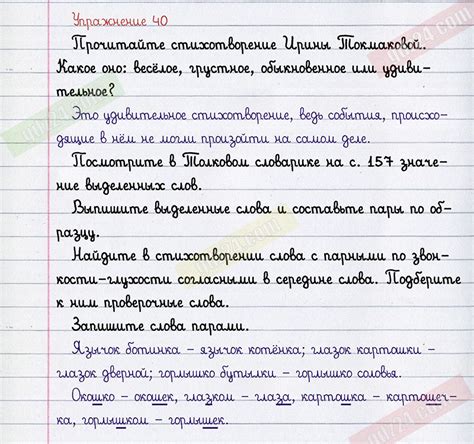 Упражнение 40
Прочитайте стихотворение Ирины Токмаковой.
Какое оно: весёлое, грустное, обыкновенное или удиви-
тельное?
Это удивительное стихотворение, ведь события, происхо-
дящие в нём не могли произойти на самом деле.
Посмотрите в Толковом словарике на с. 157 значе-
ние выделенных слов.
Выпишите выделенные слова и составьте пары по об-
разцу.
Найдите в стихотворении слова с парными по звон-
кости-глухости согласными в середине слова. Подберите
к ним проверочные слова.
Запишите слова парами.
Язычок ботинка – язычок котёнка; глазок картошки –
глазок дверной; горлышко бутылки – горлышко соловья.
Окошко – окошек, глазком – глаза, картошка – картошеч-
ка, горлышком – горлышек.